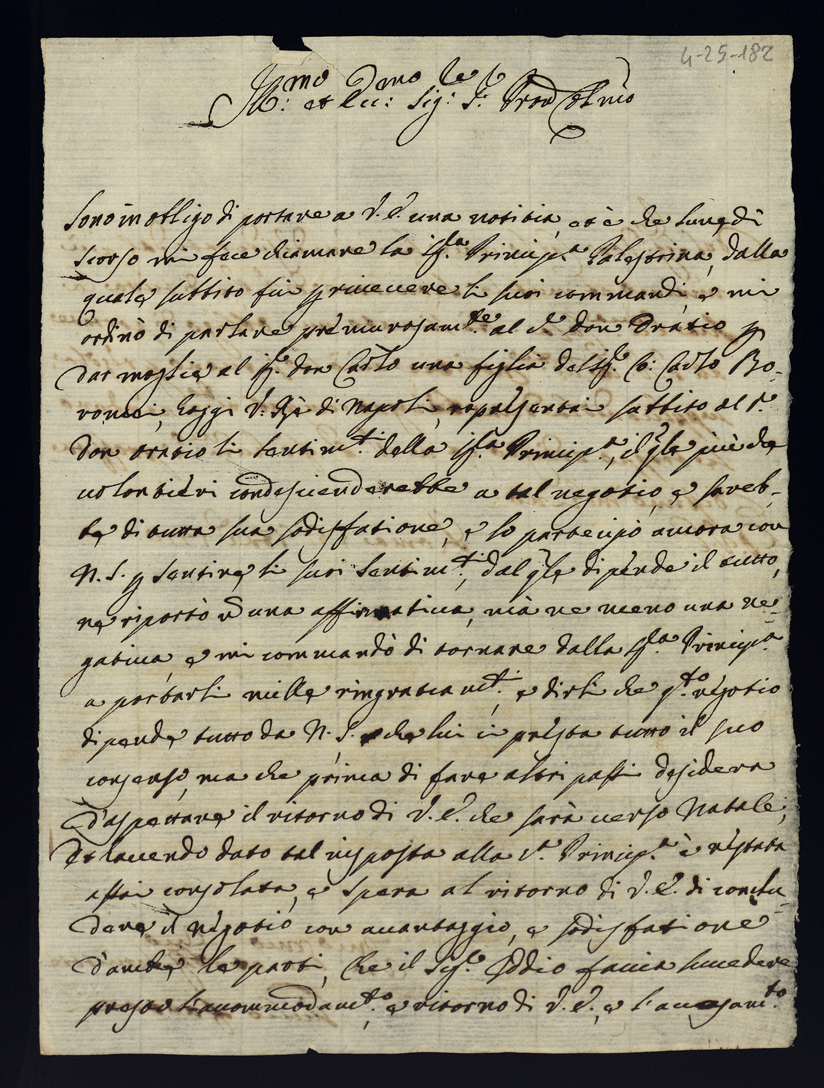 4-25-182
Ill:mo et Ecc:mo Sig:re S:r Pron Col:mo
Sono in obligo di portare a V.E. una notitia, et è che lunedi
scorso mi fece chiamare la Sig.ra Princip.a Palestrina, dalla
quale subbito fui p riceuere li suoi commandi, e mi
ordinò di parlare premurosam.te al S.r don Oratio p
dar moglie al Sig.r don Carlo una figlia del Sig.r Co: Carlo Bo-
romei, hoggi V. Rè di Napoli, rapresentai subbito al S.r
Don Oratio li sentim.ti della Sig.ra Princip.a, il qle più che
uolontieri condescenderebbe a tal negotio, e sareb-
be di tutta sua sodisfatione, e lo partecipò ancora con
N.S. p sentire li suoi sentim.ti, dal qle dipende il tutto,
ne riportò una affirmatiua, mà ne meno una ne-
gatiua, e mi commandò di tornare dalla Sig.ra Princip.a
a portarli mille ringratiam.ti, e dirli che q.to negotio
dipende tutto da N.S. che lui ci presta tutto il suo
consenso, ma che prima di fare altri passi desidera
d'aspettare il ritorno di V.E. che sarà uerso Natale;
Et hauendo dato tal risposta alla S.ra Princip.a è restata
assai consolata, e spera al ritorno di V.E. di conclu-
dere il negotio con auantaggio, e sodisfatione
d'ambe le parti, che il Sig.re Iddio faccia succedere
presto l'accommodam.to, e ritorno di V.E., e l'